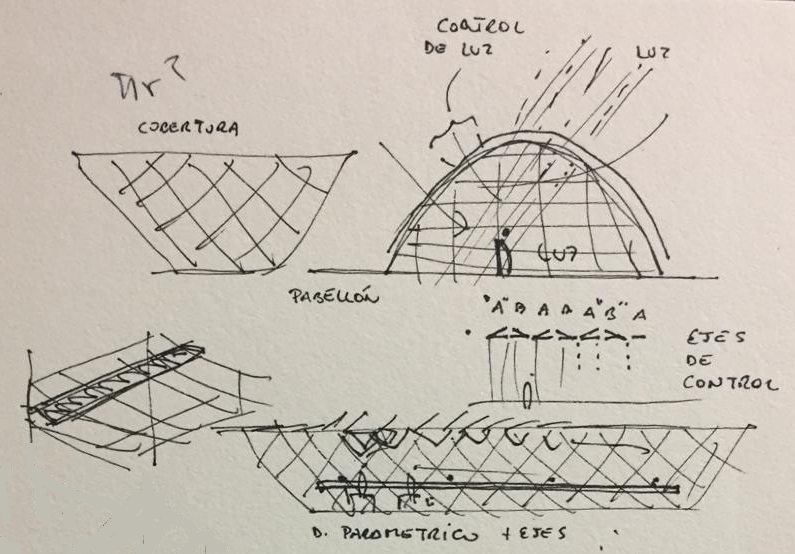 πr²
COBERTURA
CONTROL
DE LUZ
LUZ
LUZ
PABELLÓN
"A" B A A A "B" A
EJES
DE
CONTROL
D. PARAMETRICO + EJES